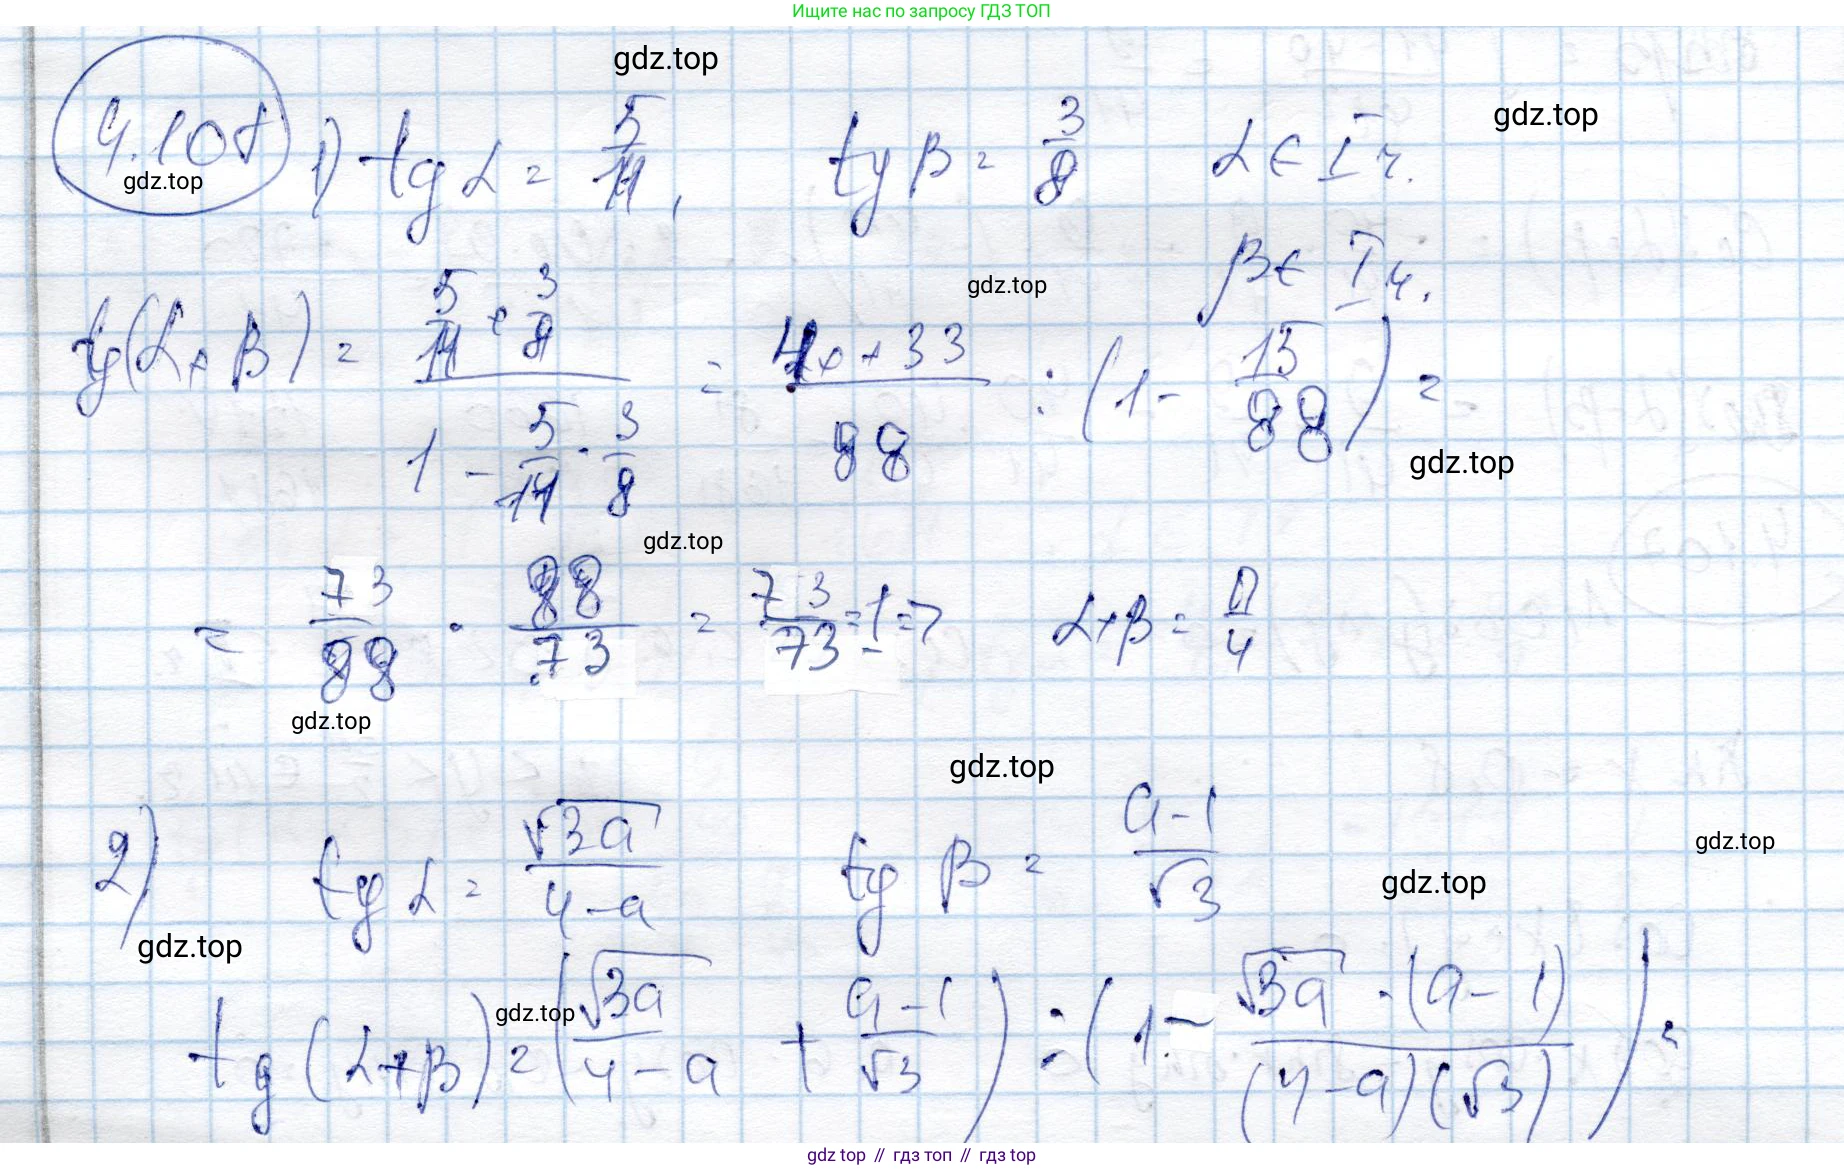 Ищите нас по запросу ГДЗ ТОП
gdz.top
gdz.top
4.108 1) tg α = 5/11, tg β = 3/8 α ∈ I ч.
gdz.top
β ∈ I ч.
gdz.top
tg(α+β) = (5/11 + 3/8)/(1 - 5/11 · 3/8) = (40+33)/88 : (1 - 15/88) =
gdz.top
gdz.top
= 73/88 · 88/73 = 73/73 = 1 => α+β = π/4
gdz.top
gdz.top
2) tg α = √3a/(4-a) tg β = (a-1)/√3
gdz.top
gdz.top
gdz.top
gdz.top
tg(α+β) = (√3a/(4-a) + (a-1)/√3) : (1 - √3a·(a-1)/((4-a)(√3))) =
gdz.top // гдз топ // гдз top